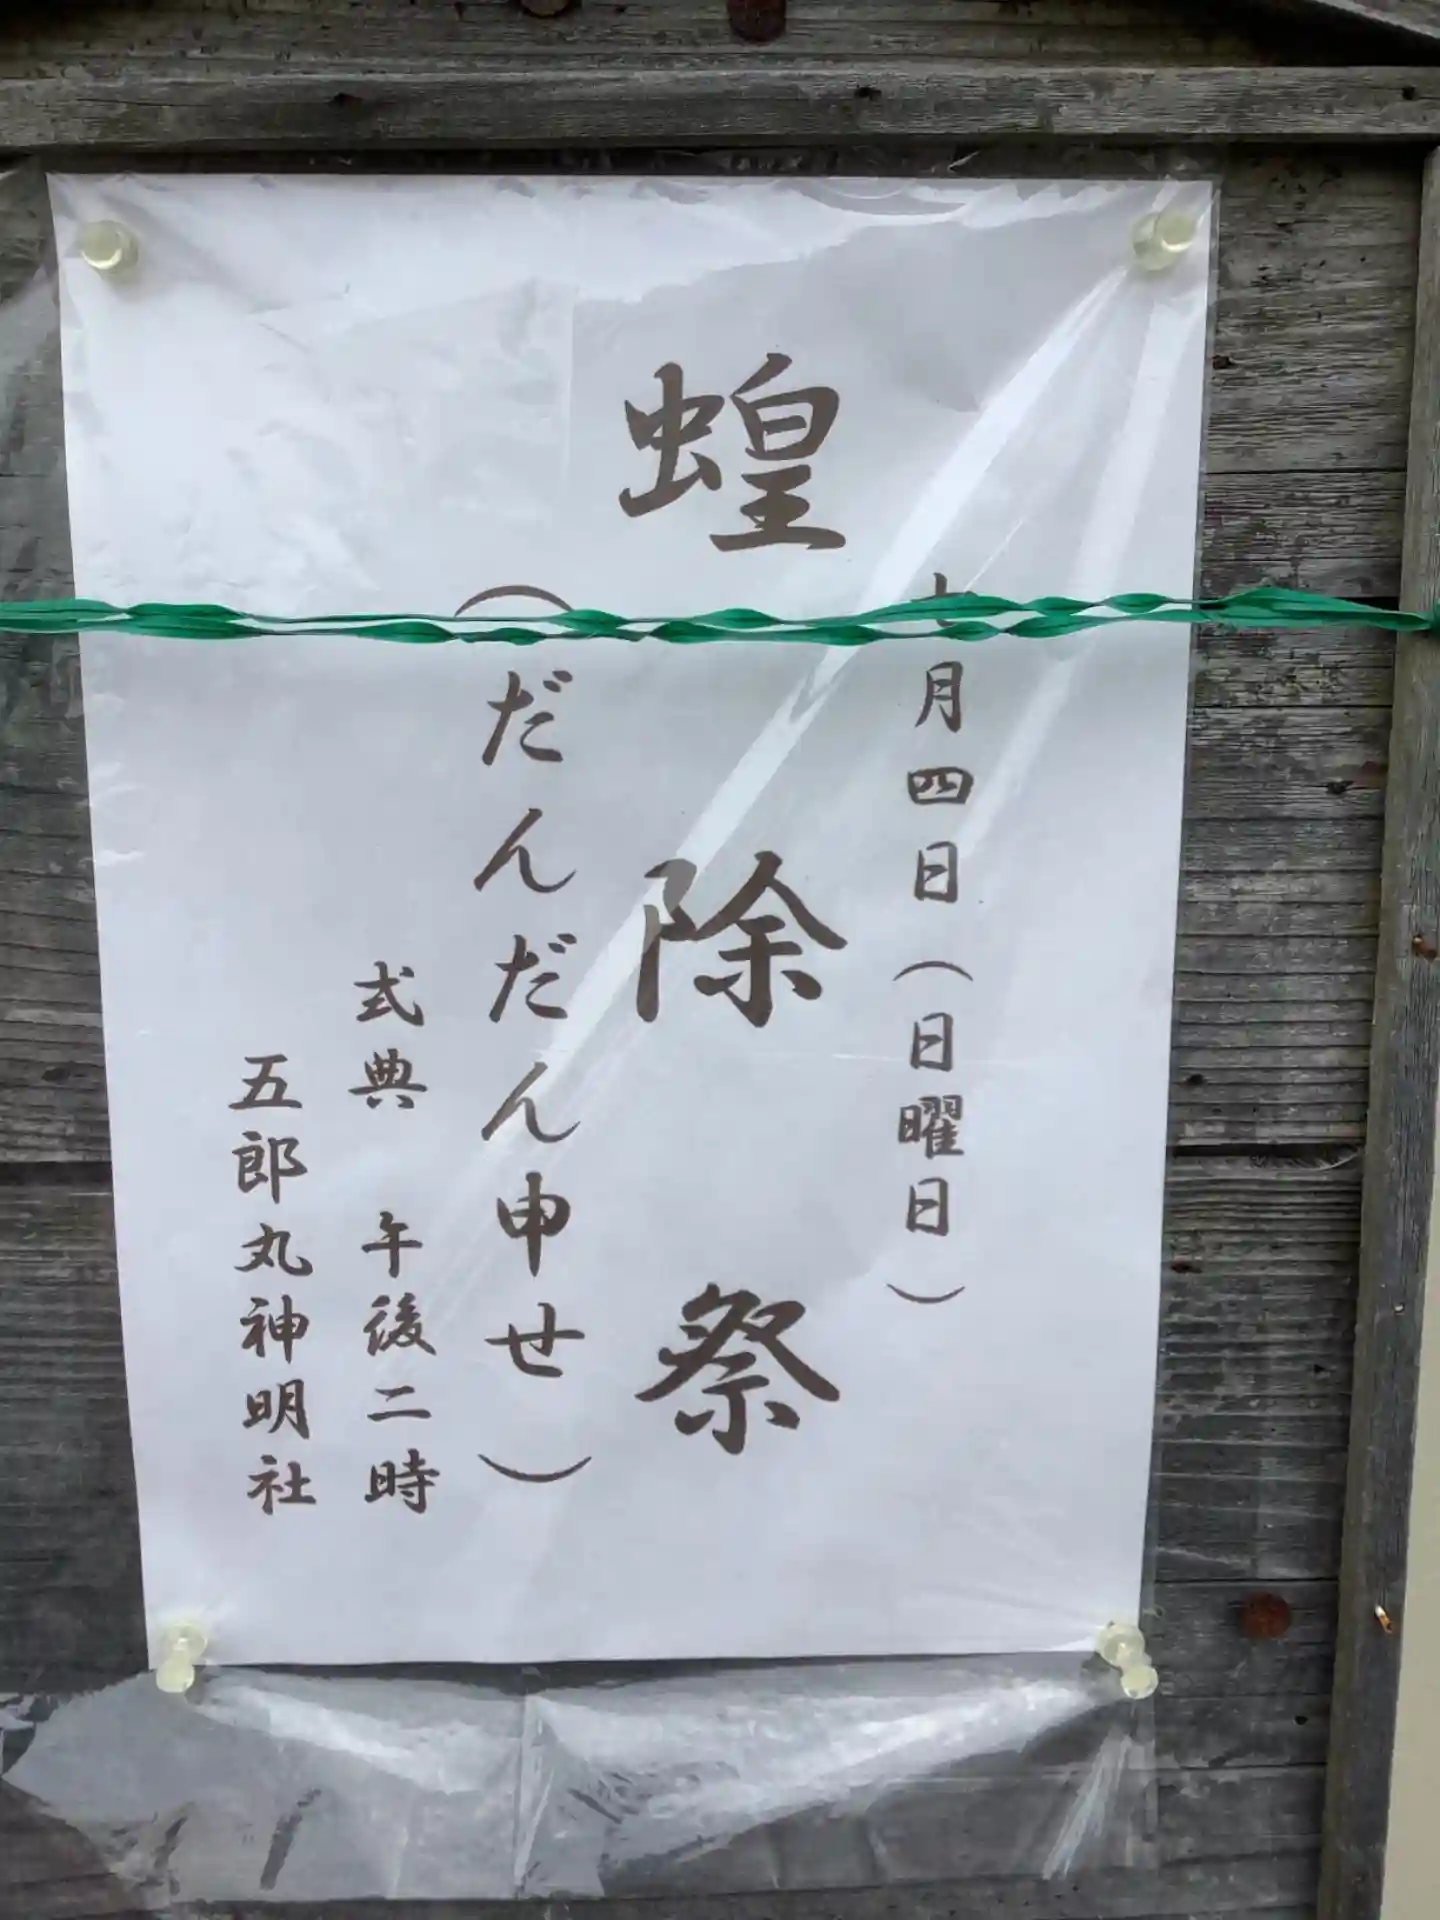 月四日（日曜日）
蝗除祭
（だんだん申せ）
式典 午後二時
五郎丸神明社